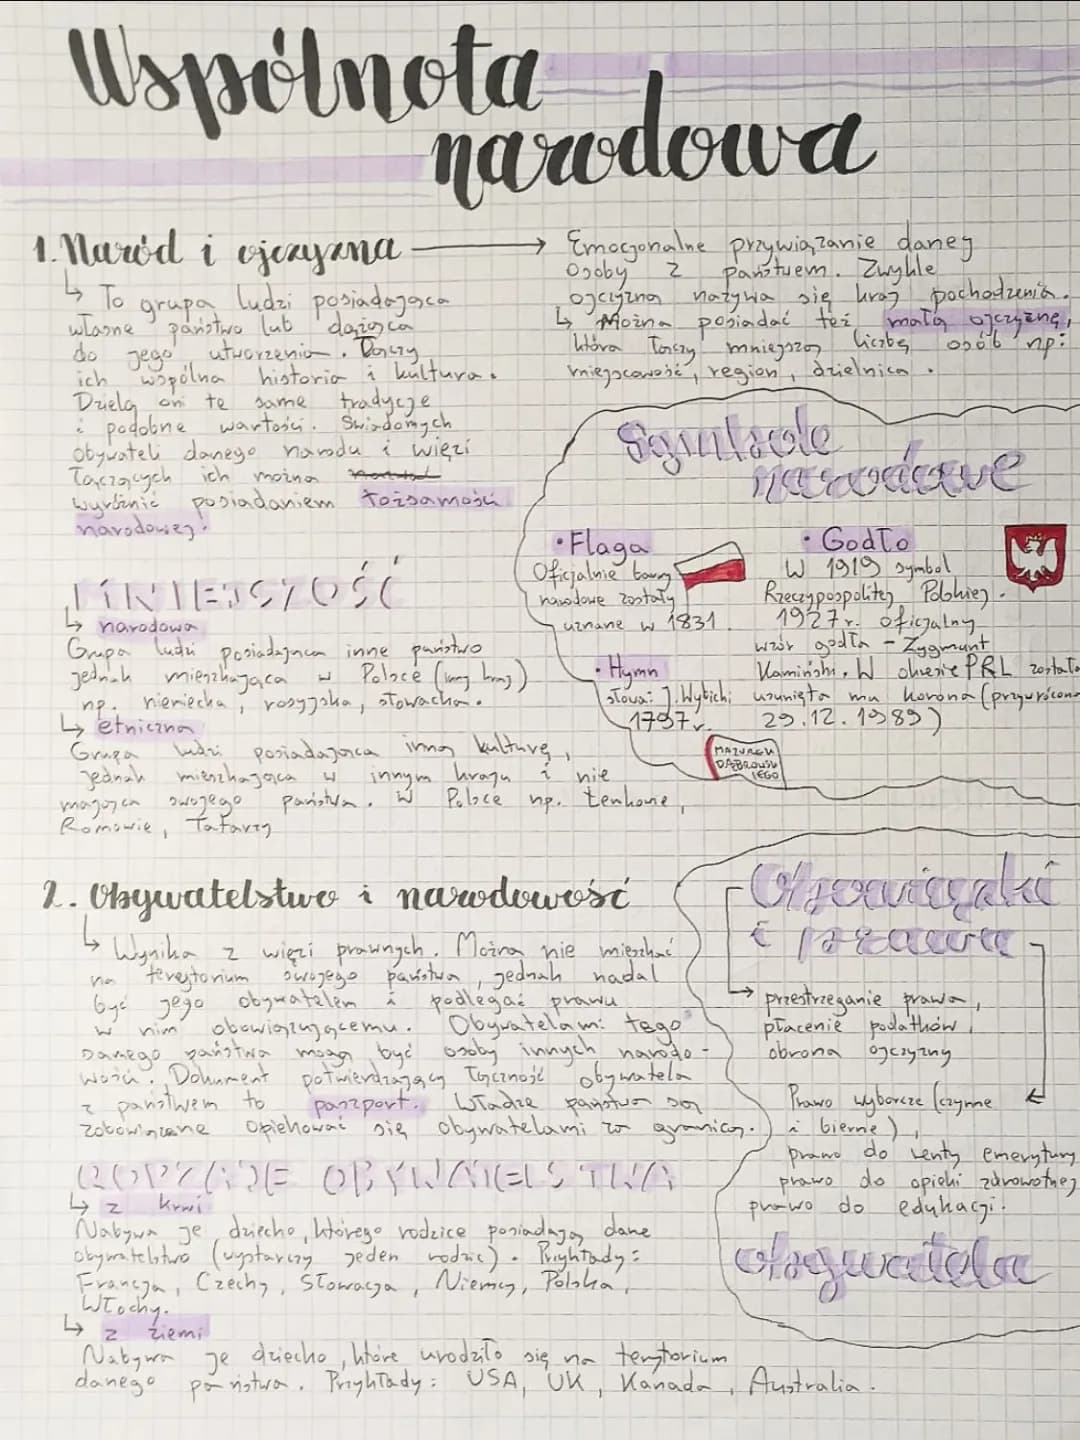 Wspólnota
narodowa
1. Naród i ojczyzna
↳ To grupa ludzi posiadająca
własne państwo lub dążąca
do jego utworzenia. Łączy
ich wspólna historia i kultura.
Dzielą oni te same tradycje
i podobne wartości. Świadomych
obywateli danego narodu i więzi
łączących ich można
wyróżnić posiadaniem tożsamości
narodowej.
→ Emocjonalne przywiązanie danej
osoby z państwem. Zwykle
ojczyzną nazywa się kraj pochodzenia.
↳ Można posiadać też małą ojczyznę,
która łączy mniejszą liczbę osób np:
miejscowość, region, dzielnica.
Symbole
narodowe
• Flaga
Oficjalnie barwy
narodowe zostały
uznane w 1831.
• Hymn
słowa: J. Wybicki
1797r.
MAZUREK
DĄBROWSK
IEGO
• Godło
W 1919 symbol
Rzeczypospolitej Polskiej.
1927r. oficjalny
wzór godła - Zygmunt
Kamiński. W okresie PRL została
usunięta mu korona (przywrócona
29.12.1989)
MNIEJSZOŚĆ
↳ narodowa
Grupa ludzi posiadająca inne państwo
jednak mieszkająca w Polsce (inny kraj)
np. niemiecka, rosyjska, słowacka.
↳ etniczna
Grupa ludzi posiadająca inną kulturę,
jednak mieszkająca w innym kraju i nie
mająca swojego państwa. W Polsce np. Łemkowie,
Romowie, Tatarzy
2. Obywatelstwo i narodowość
↳ Wynika z więzi prawnych. Można nie mieszkać
na terytorium swojego państwa, jednak nadal
być jego obywatelem i podlegać prawu
w nim obowiązującemu. Obywatelami tego
samego państwa mogą być osoby innych narodo-
wości. Dokument potwierdzający łączność obywatela
z państwem to paszport. Władze państwa są
zobowiązane opiekować się obywatelami za granicą.
Obowiązki
i prawa
→ przestrzeganie prawa,
płacenie podatków,
obrona ojczyzny
Prawo wyborcze (czynne
i bierne),
prawo do renty emerytury
prawo do opieki zdrowotnej
prawo do edukacji.
obywatela
RODZAJE OBYWATELSTWA
↳ z krwi
Nabywa je dziecko, którego rodzice posiadają dane
obywatelstwo (wystarczy jeden rodzic). Przykłady:
Francja, Czechy, Słowacja, Niemcy, Polska,
Włochy.
↳ z ziemi
Nabywa je dziecko, które urodziło się na terytorium
danego państwa. Przykłady: USA, UK, Kanada, Australia.